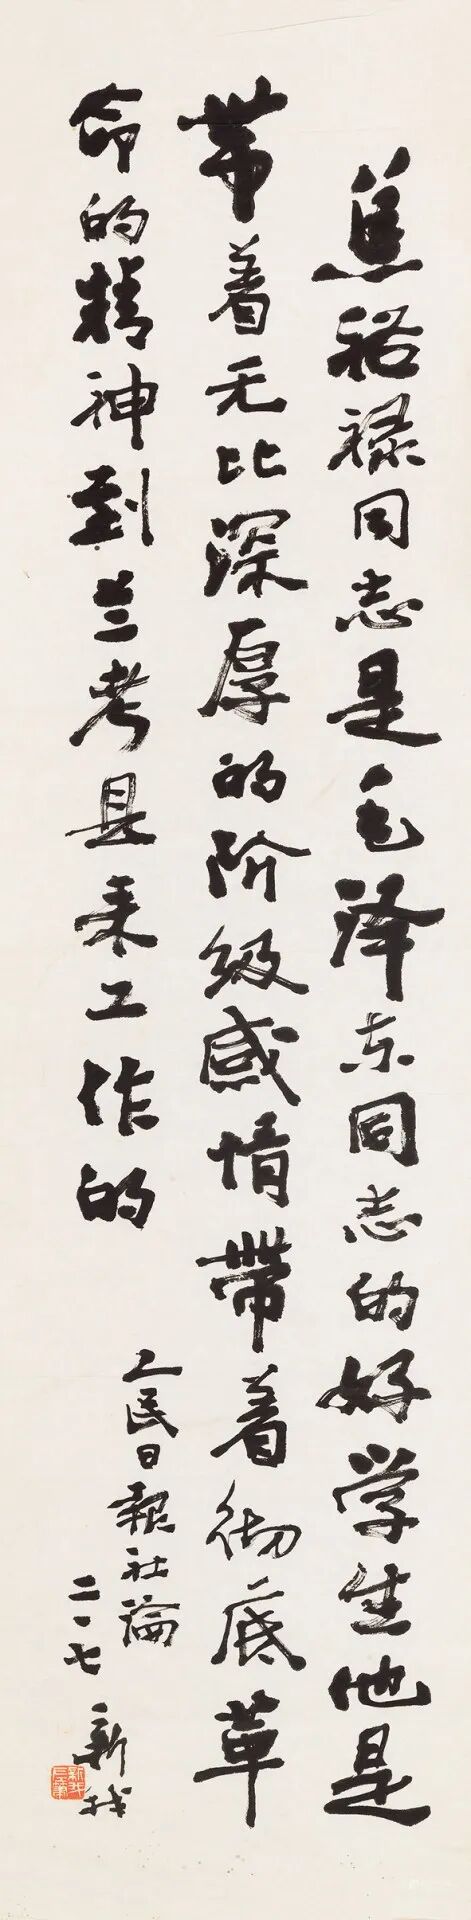 焦裕禄同志是毛泽东同志的好学生他是
帶着无比深厚的阶级感情帶着彻底革
命的精神到兰考县来工作的
人民日報社論
二、七
新我